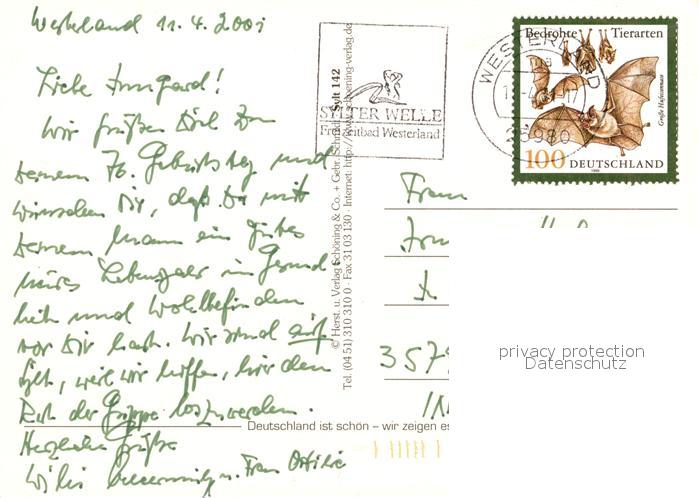 Westerland 11.4.2001
Liebe Irmgard!
Wir grüßen Dich zu
Deinem 70. Geburtstag und
wünschen Dir, daß Du mit
Deinem Mann ein gutes
neues Lebensjahr in Gesund
heit und Wohlbefinden
vor Dir hast. Wir sind auf
Sylt, weil wir hoffen, hier den
Rest der Grippe loszuwerden.
Herzliche Grüße
Frau
SYLTER WELLE
Freizeitbad Westerland
WESTERLAND
25980
Bedrohte Tierarten
Große Hufeisennase
100 DEUTSCHLAND
1999
© Herst. u. Verlag Schöning & Co. + Gebr. Schmidt Sylt 142
Tel. (04 51) 310 310 0 · Fax 31 03 130 · Internet: http://www.schoening-verlag.de
Frau
357
Deutschland ist schön – wir zeigen es
privacy protection
Datenschutz